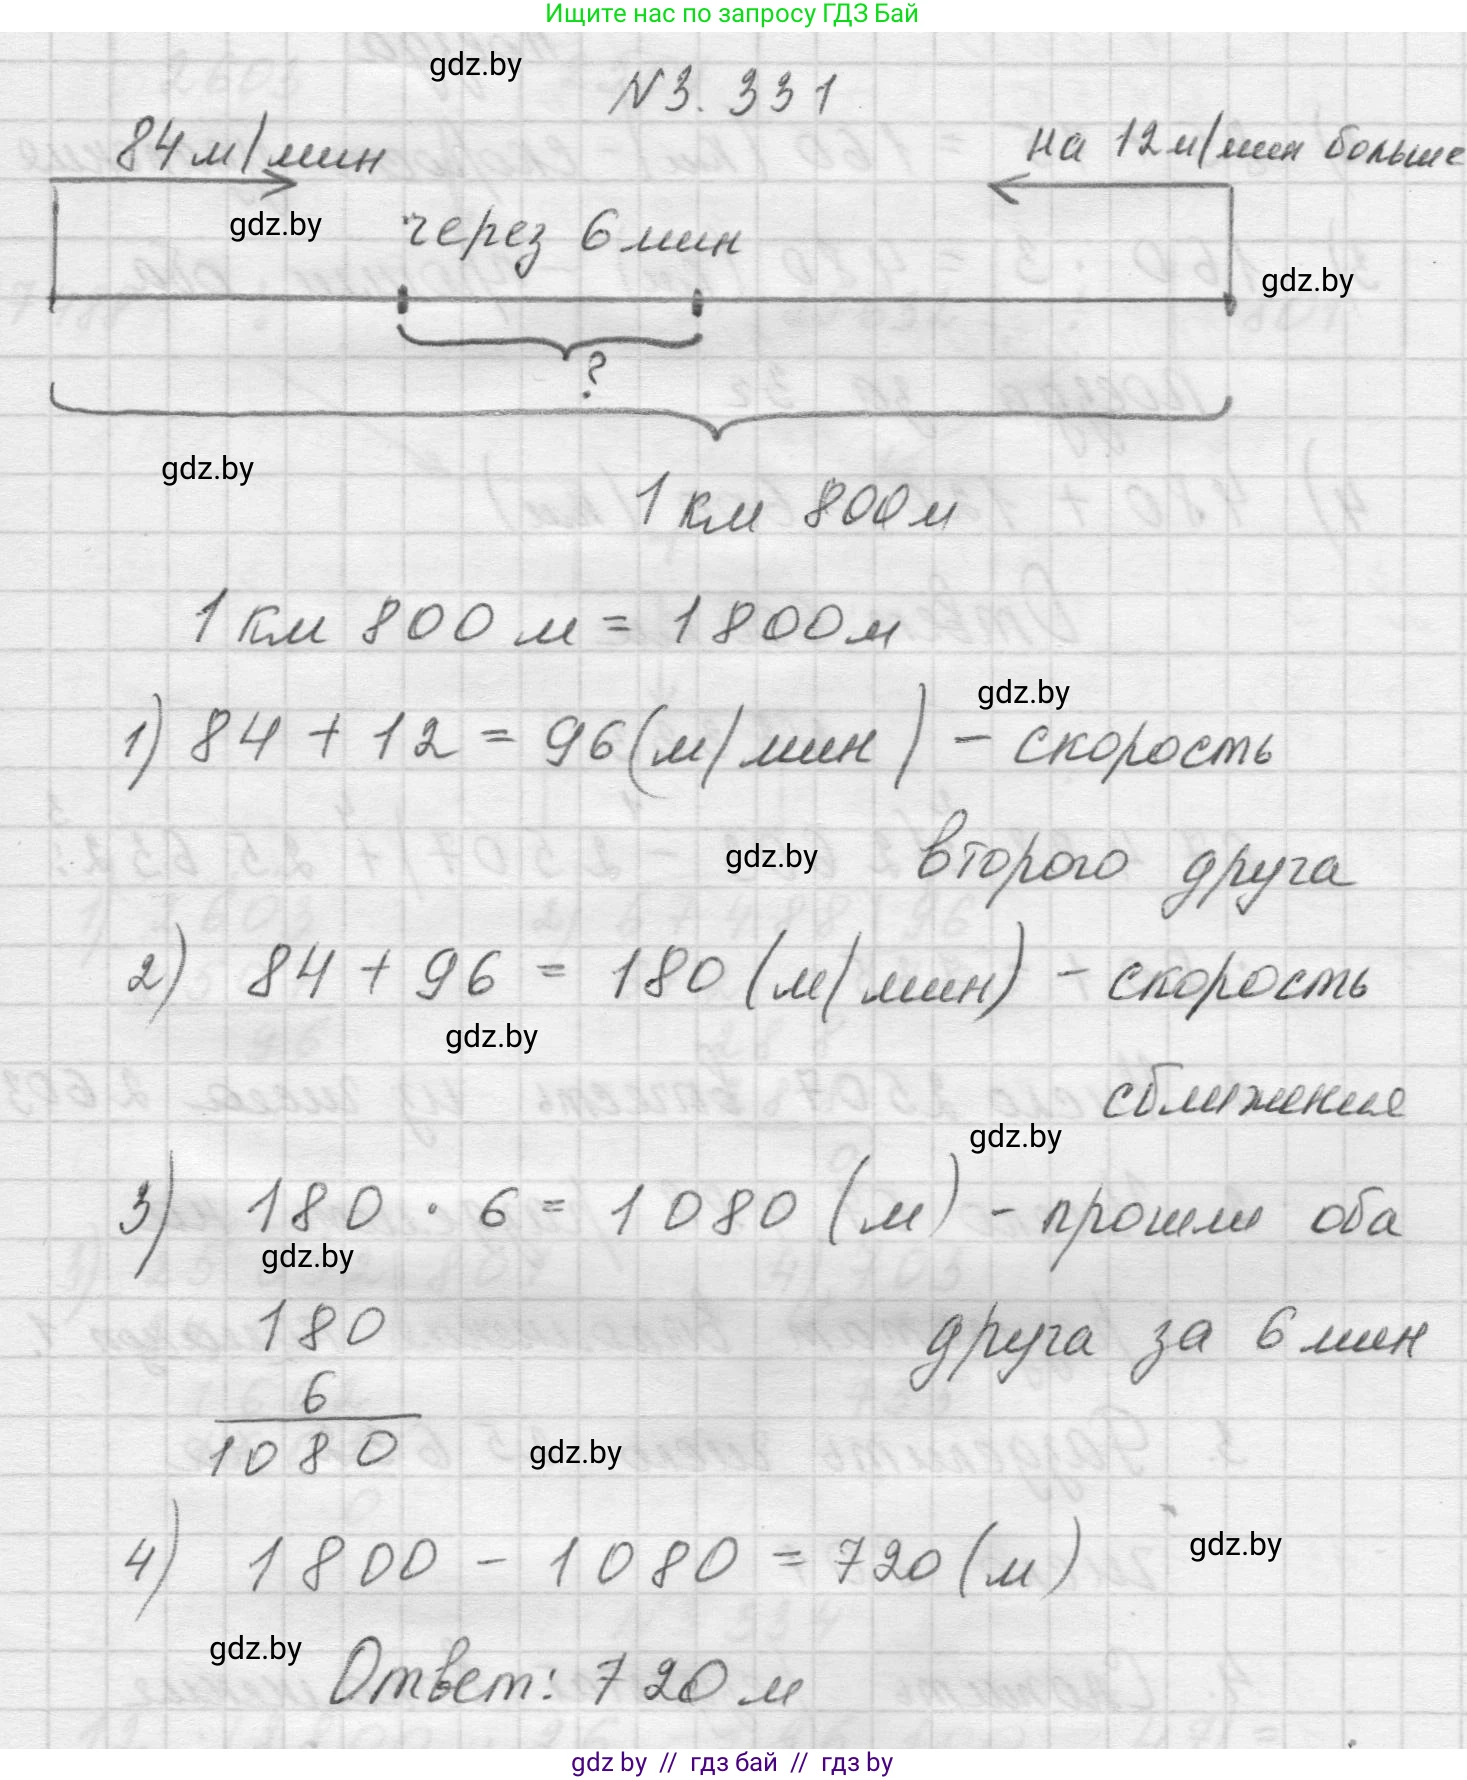 Ищите нас по запросу ГДЗ Бай
gdz.by
№3.331
84 м/мин
на 12 м/мин больше
gdz.by
через 6 мин
gdz.by
?
gdz.by
1 км 800 м
1 км 800 м = 1800 м
gdz.by
1) 84 + 12 = 96 (м/мин) - скорость
gdz.by
второго друга
2) 84 + 96 = 180 (м/мин) - скорость
gdz.by
сближения
gdz.by
3) 180 · 6 = 1080 (м) - прошли оба
gdz.by
180
друга за 6 мин
6
1080
gdz.by
4) 1800 - 1080 = 720 (м)
gdz.by
gdz.by
Ответ: 720 м
gdz by // гдз бай // гдз by